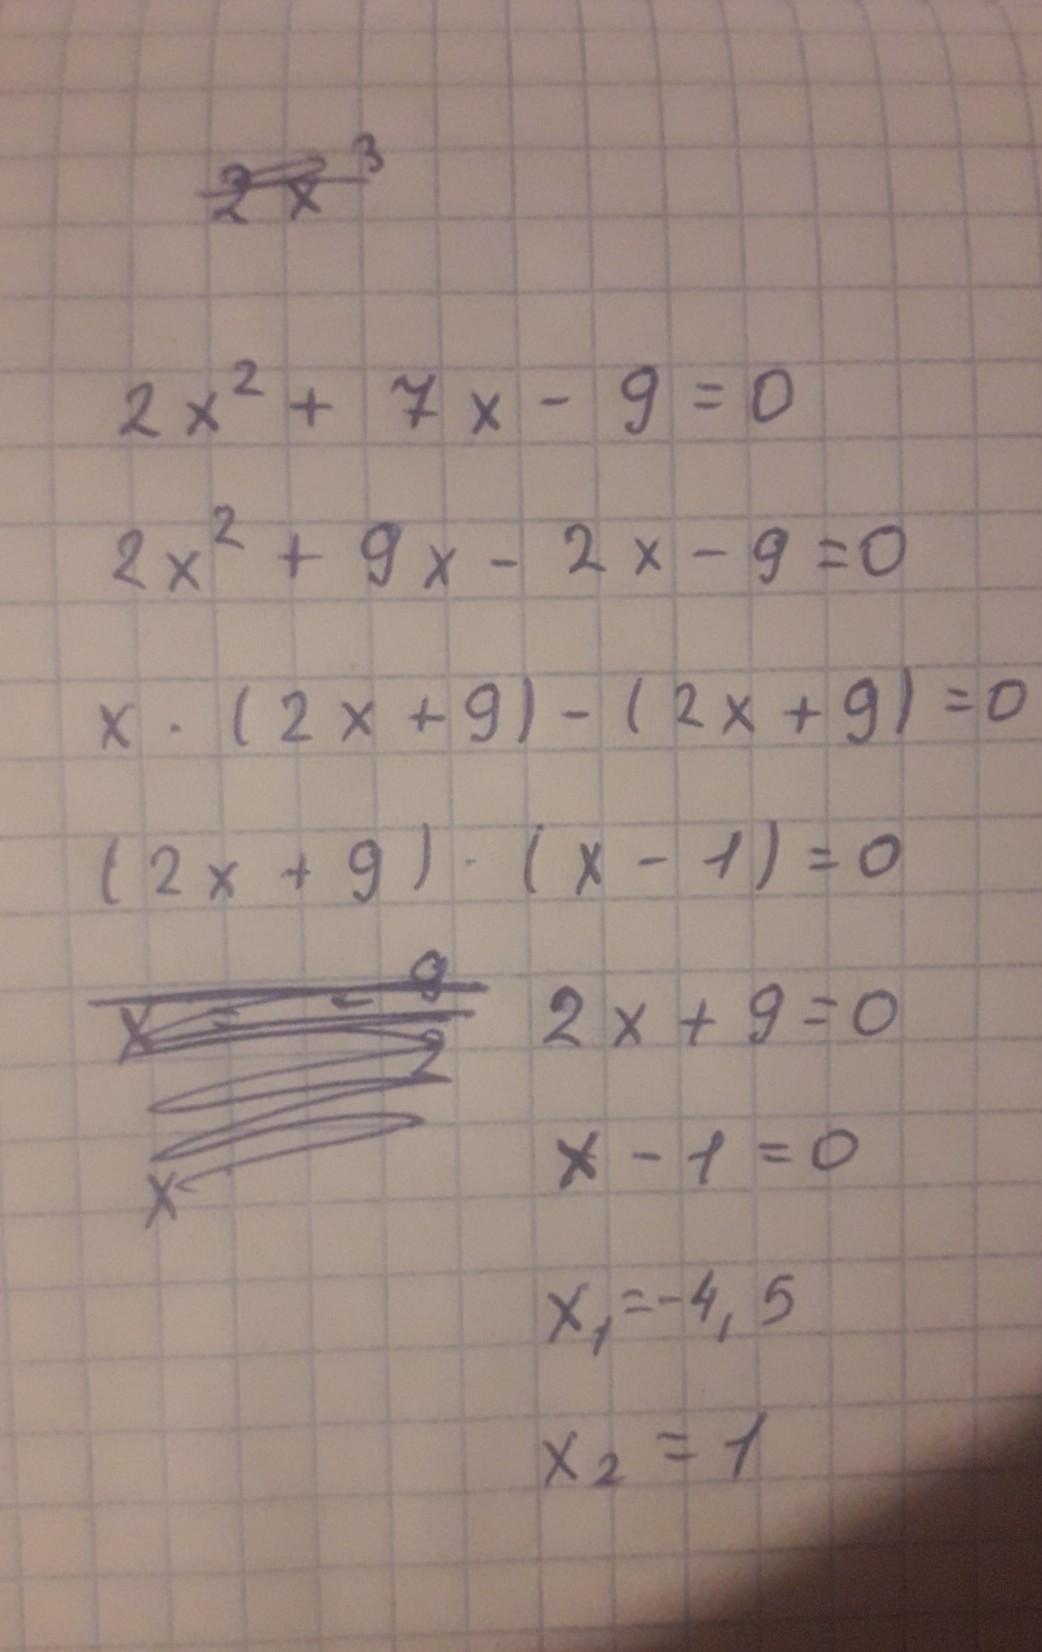 2x³
2x² + 7x - 9 = 0
2x² + 9x - 2x - 9 = 0
x · (2x + 9) - (2x + 9) = 0
(2x + 9) · (x - 1) = 0
x = - 9/2
2x + 9 = 0
x
x - 1 = 0
x₁ = -4,5
x₂ = 1